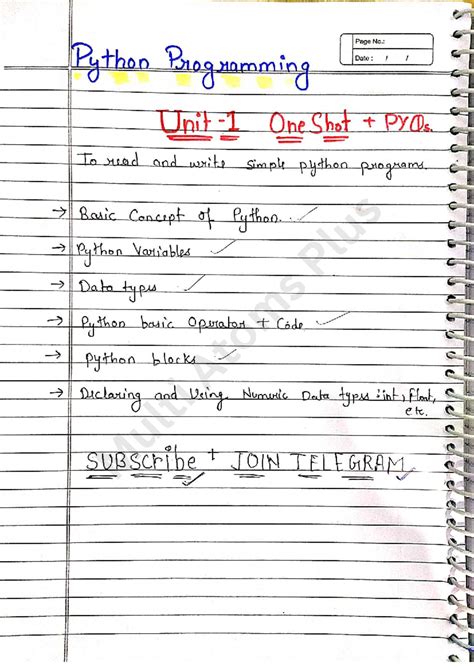 Python Programming
Page No.:
Date: / /
Unit-1 One Shot + PYQs.
To read and write simple python programs.
→ Basic Concept of Python.
→ Python Variables
→ Data types
→ Python basic Operator + Code
→ Python blocks
→ Declaring and Using Numeric Data types : int, float,
etc.
SUBSCribe + JOIN TELEGRAM
Multi Atoms Plus